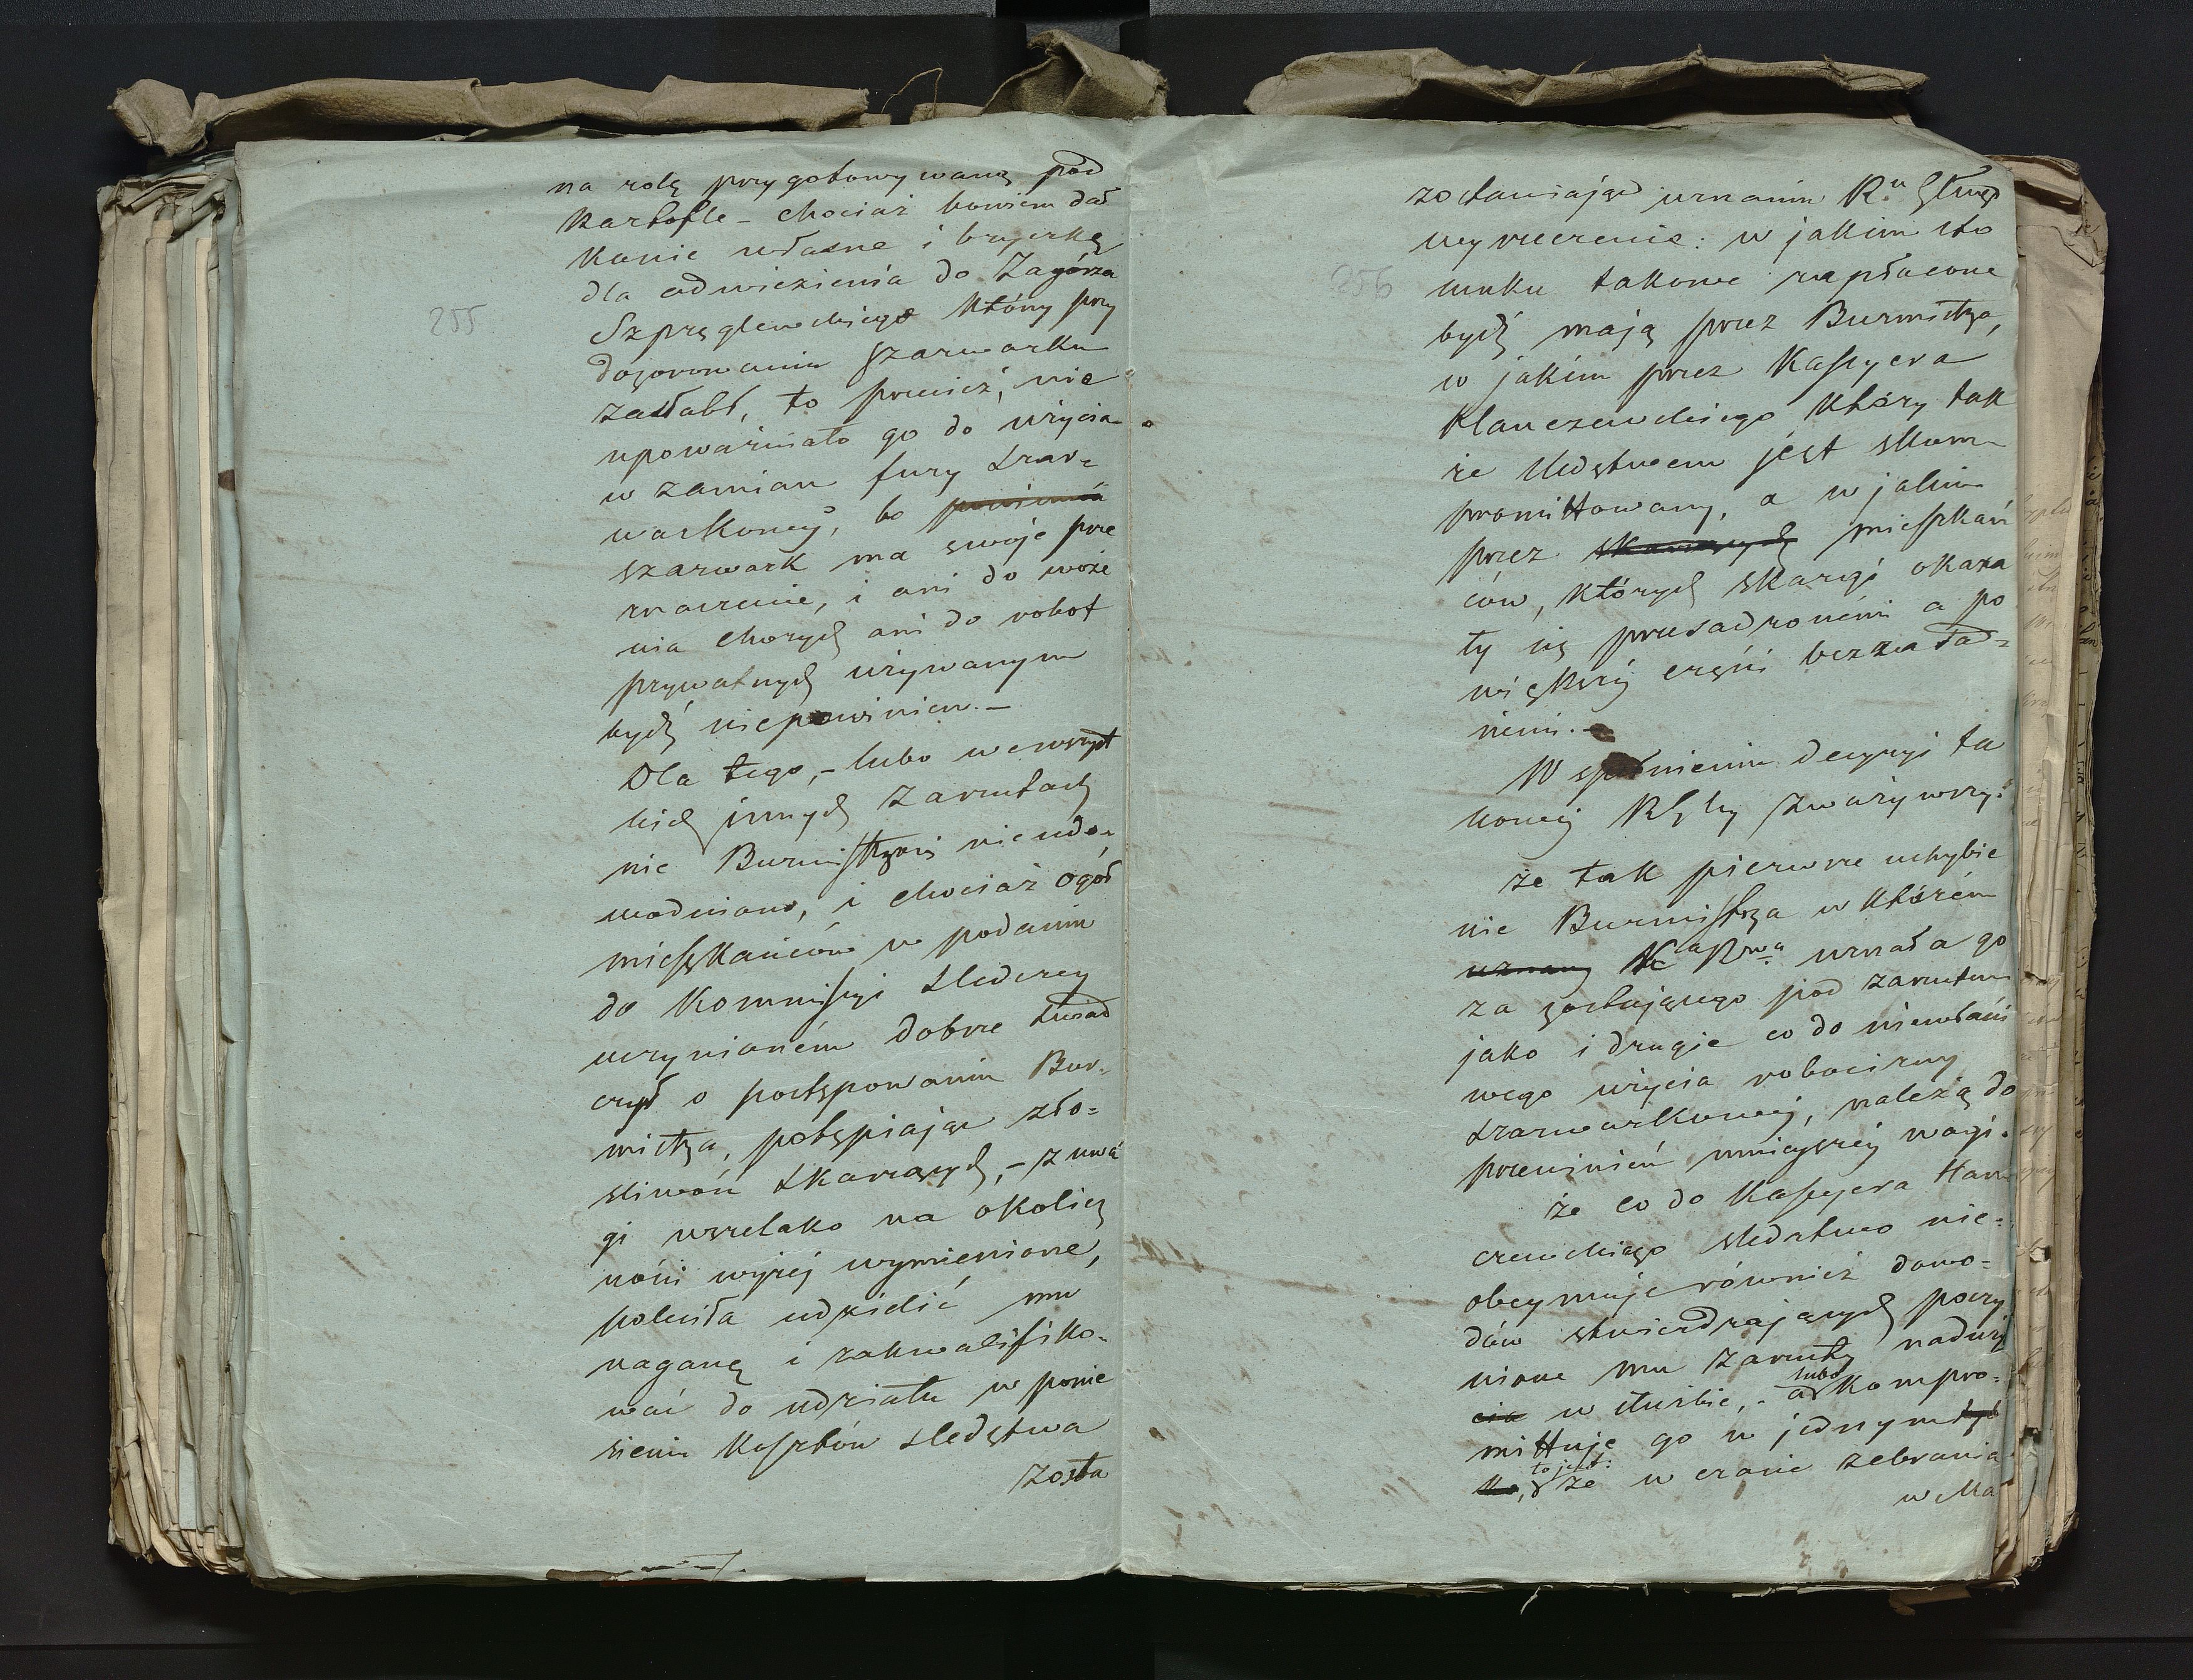 255
na rolę przygotowywaną pod
Kartofle – chociaż bowiem dał
Konie własne i bryczkę
dla odwiezienia do Zagórza
Szpręglewskiego który przy
dozorowaniu szarwarku
zasłabł, to przecież, nie
upoważniało go do użycia
w zamian fury szar=
warkowej, bo powinna
szarwark ma swoje prze
znaczenie, i ani do woże
nia chorych ani do robot
prywatnych używanym
bydź niepowinien. –
Dla tego, – lubo wewszyst
kich innych zarzutach
nic Burmistrzowi nieudo-
wodniono, i chociaż ogół
mieszkańców w podaniu
do Kommissyi Sledczey
uczynioném dobrze świad
czył o postępowaniu Bur-
mistrza, potępiając zło=
śliwość skarzących, – z uwa
gi wszelako na okolicz
ności wyżej wymienione,
poleciła udzielić mu
naganę i zakwalifiko-
wać do udziału w ponie
sieniu Kosztów sledztwa
zosta
256
zostawiając uznaniu R.u Gług
wyrzeczenie: w jakim sto
sunku takowe zapłacone
bydź mają przez Burmistrza,
w jakim przez Kassyera
Klauczewskiego który tak
że sledztwem jest skom
promittowany, a w jakim
przez skarzących mieszkań
ców, których skargi okaza
ły się przesadzonémi a po
większej części bezzasad=
nemi. –
W spełnieniu decyzyi ta
kowej zważywszy:
że tak pierwsze uchybie
nie Burmistrza w którém
uznany uznała go
za zostającego pod zarzutem
jako i drugie co do niewłaści
wego użycia robocizny
szarwarkowej, należą do
przewinień mniejszej wagi.
że co do Kassyera
czewskiego sledztwo nie=
obeymuje również dowo=
dów stwierdzających poczy
nione mu zarzuty naduży
cia w służbie, – a lubo kompro=
mittuje go w jednym tyl
ko, to jest: że w czasie zebrania
w Ma